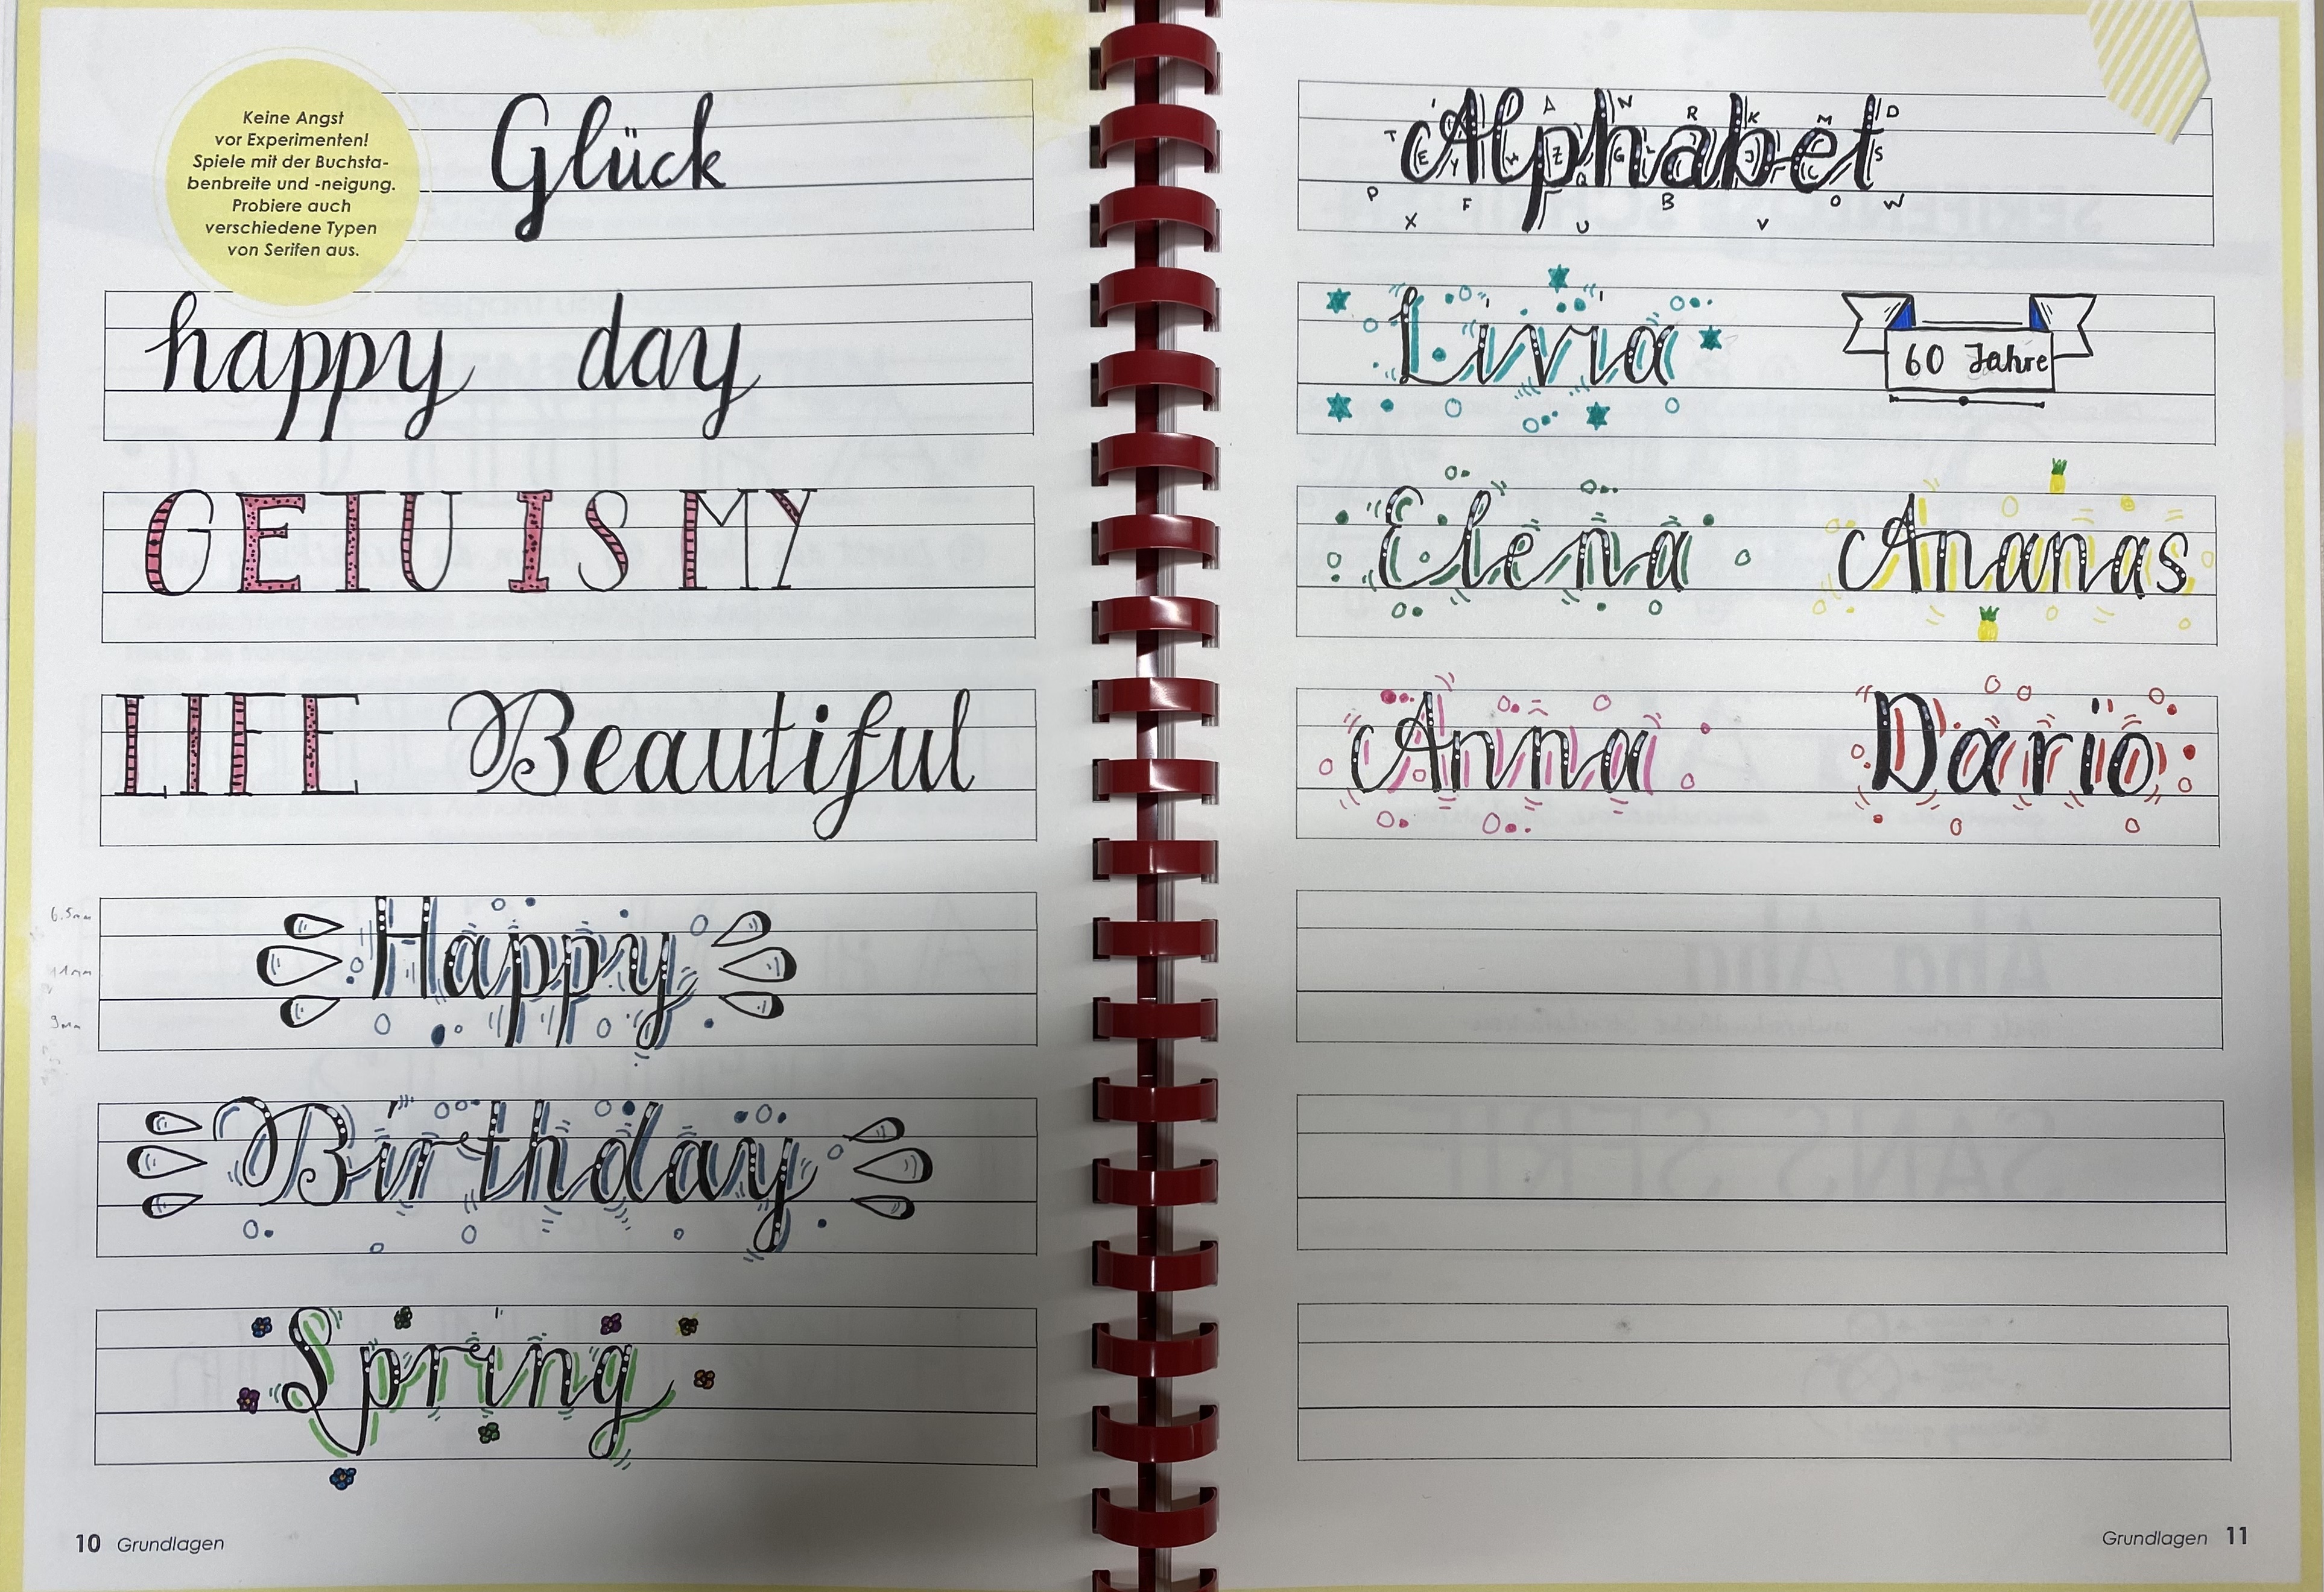 Keine Angst
vor Experimenten!
Spiele mit der Buchsta-
benbreite und -neigung.
Probiere auch
verschiedene Typen
von Serifen aus.
Glück
happy day
GETU IS MY
LIFE Beautiful
6.5mm
11mm
9mm
Happy
Birthday
Spring
10 Grundlagen
Alphabet
Livia
60 Jahre
Elena Ananas
Anna Dario
Grundlagen 11